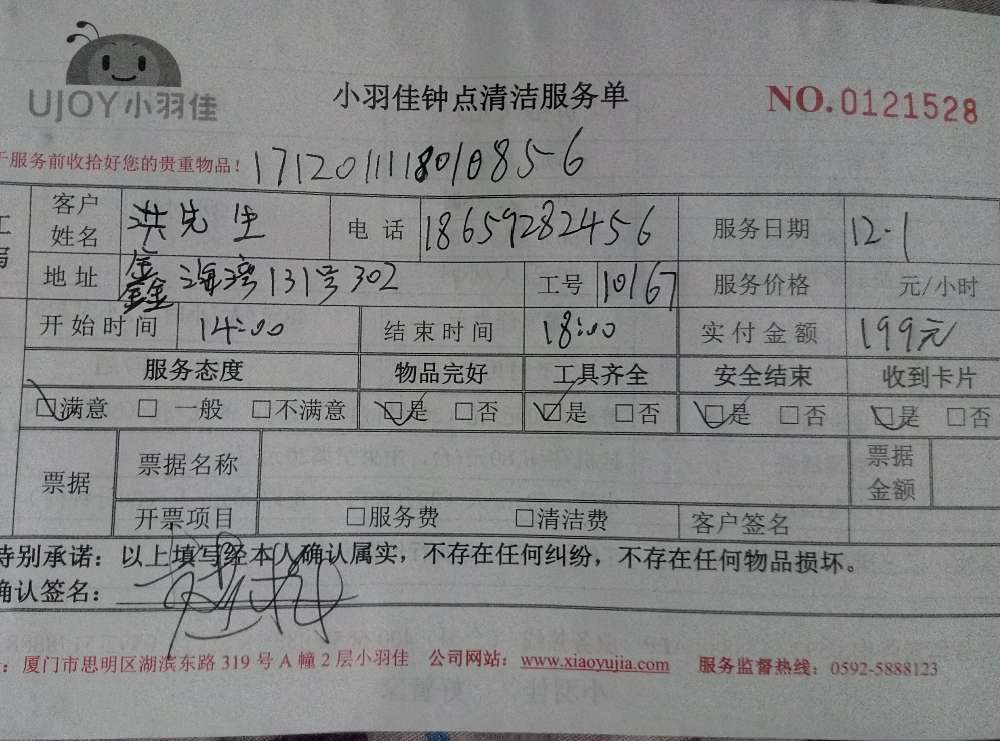 UJOY小羽佳
小羽佳钟点清洁服务单
NO.0121528
于服务前收拾好您的贵重物品！
171201111801085-6
客户姓名 洪先生 电话 18659282456 服务日期 12.1
地址 鑫海湾131号302 工号 10167 服务价格 元/小时
开始时间 14:00 结束时间 18:00 实付金额 199元
服务态度 物品完好 工具齐全 安全结束 收到卡片
☑满意 □一般 □不满意 ☑是 □否 ☑是 □否 ☑是 □否 ☑是 □否
票据 票据名称 票据金额
开票项目 □服务费 □清洁费 客户签名
特别承诺：以上填写经本人确认属实，不存在任何纠纷，不存在任何物品损坏。
确认签名：
：厦门市思明区湖滨东路 319 号 A 幢 2 层小羽佳 公司网站：www.xiaoyujia.com 服务监督热线：0592-5888123